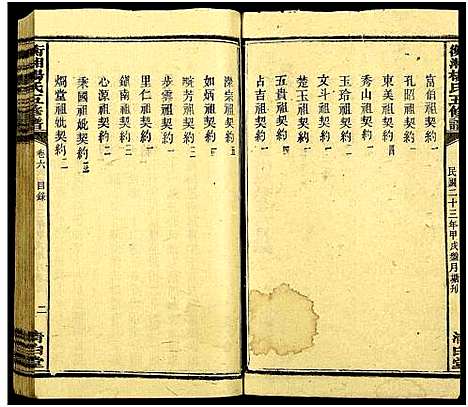 衡湘楊氏五修譜
民國二十三年甲戌
清白堂
富伯祖契約一
孔昭祖契約二
東美祖契約二
秀山祖契約一
玉玲祖契約一
文斗祖契約一
楚玉祖契約一
五貴祖契約一
占吉祖契約一
深崇祖契約五
如炳祖契約一
曉芳祖契約一
里仁祖契約一
鎮南祖契約一
心源祖契約二
秉國祖妣契約三
燭堂祖妣契約二
衡湘楊氏五修譜
卷六 目錄
二
清白堂